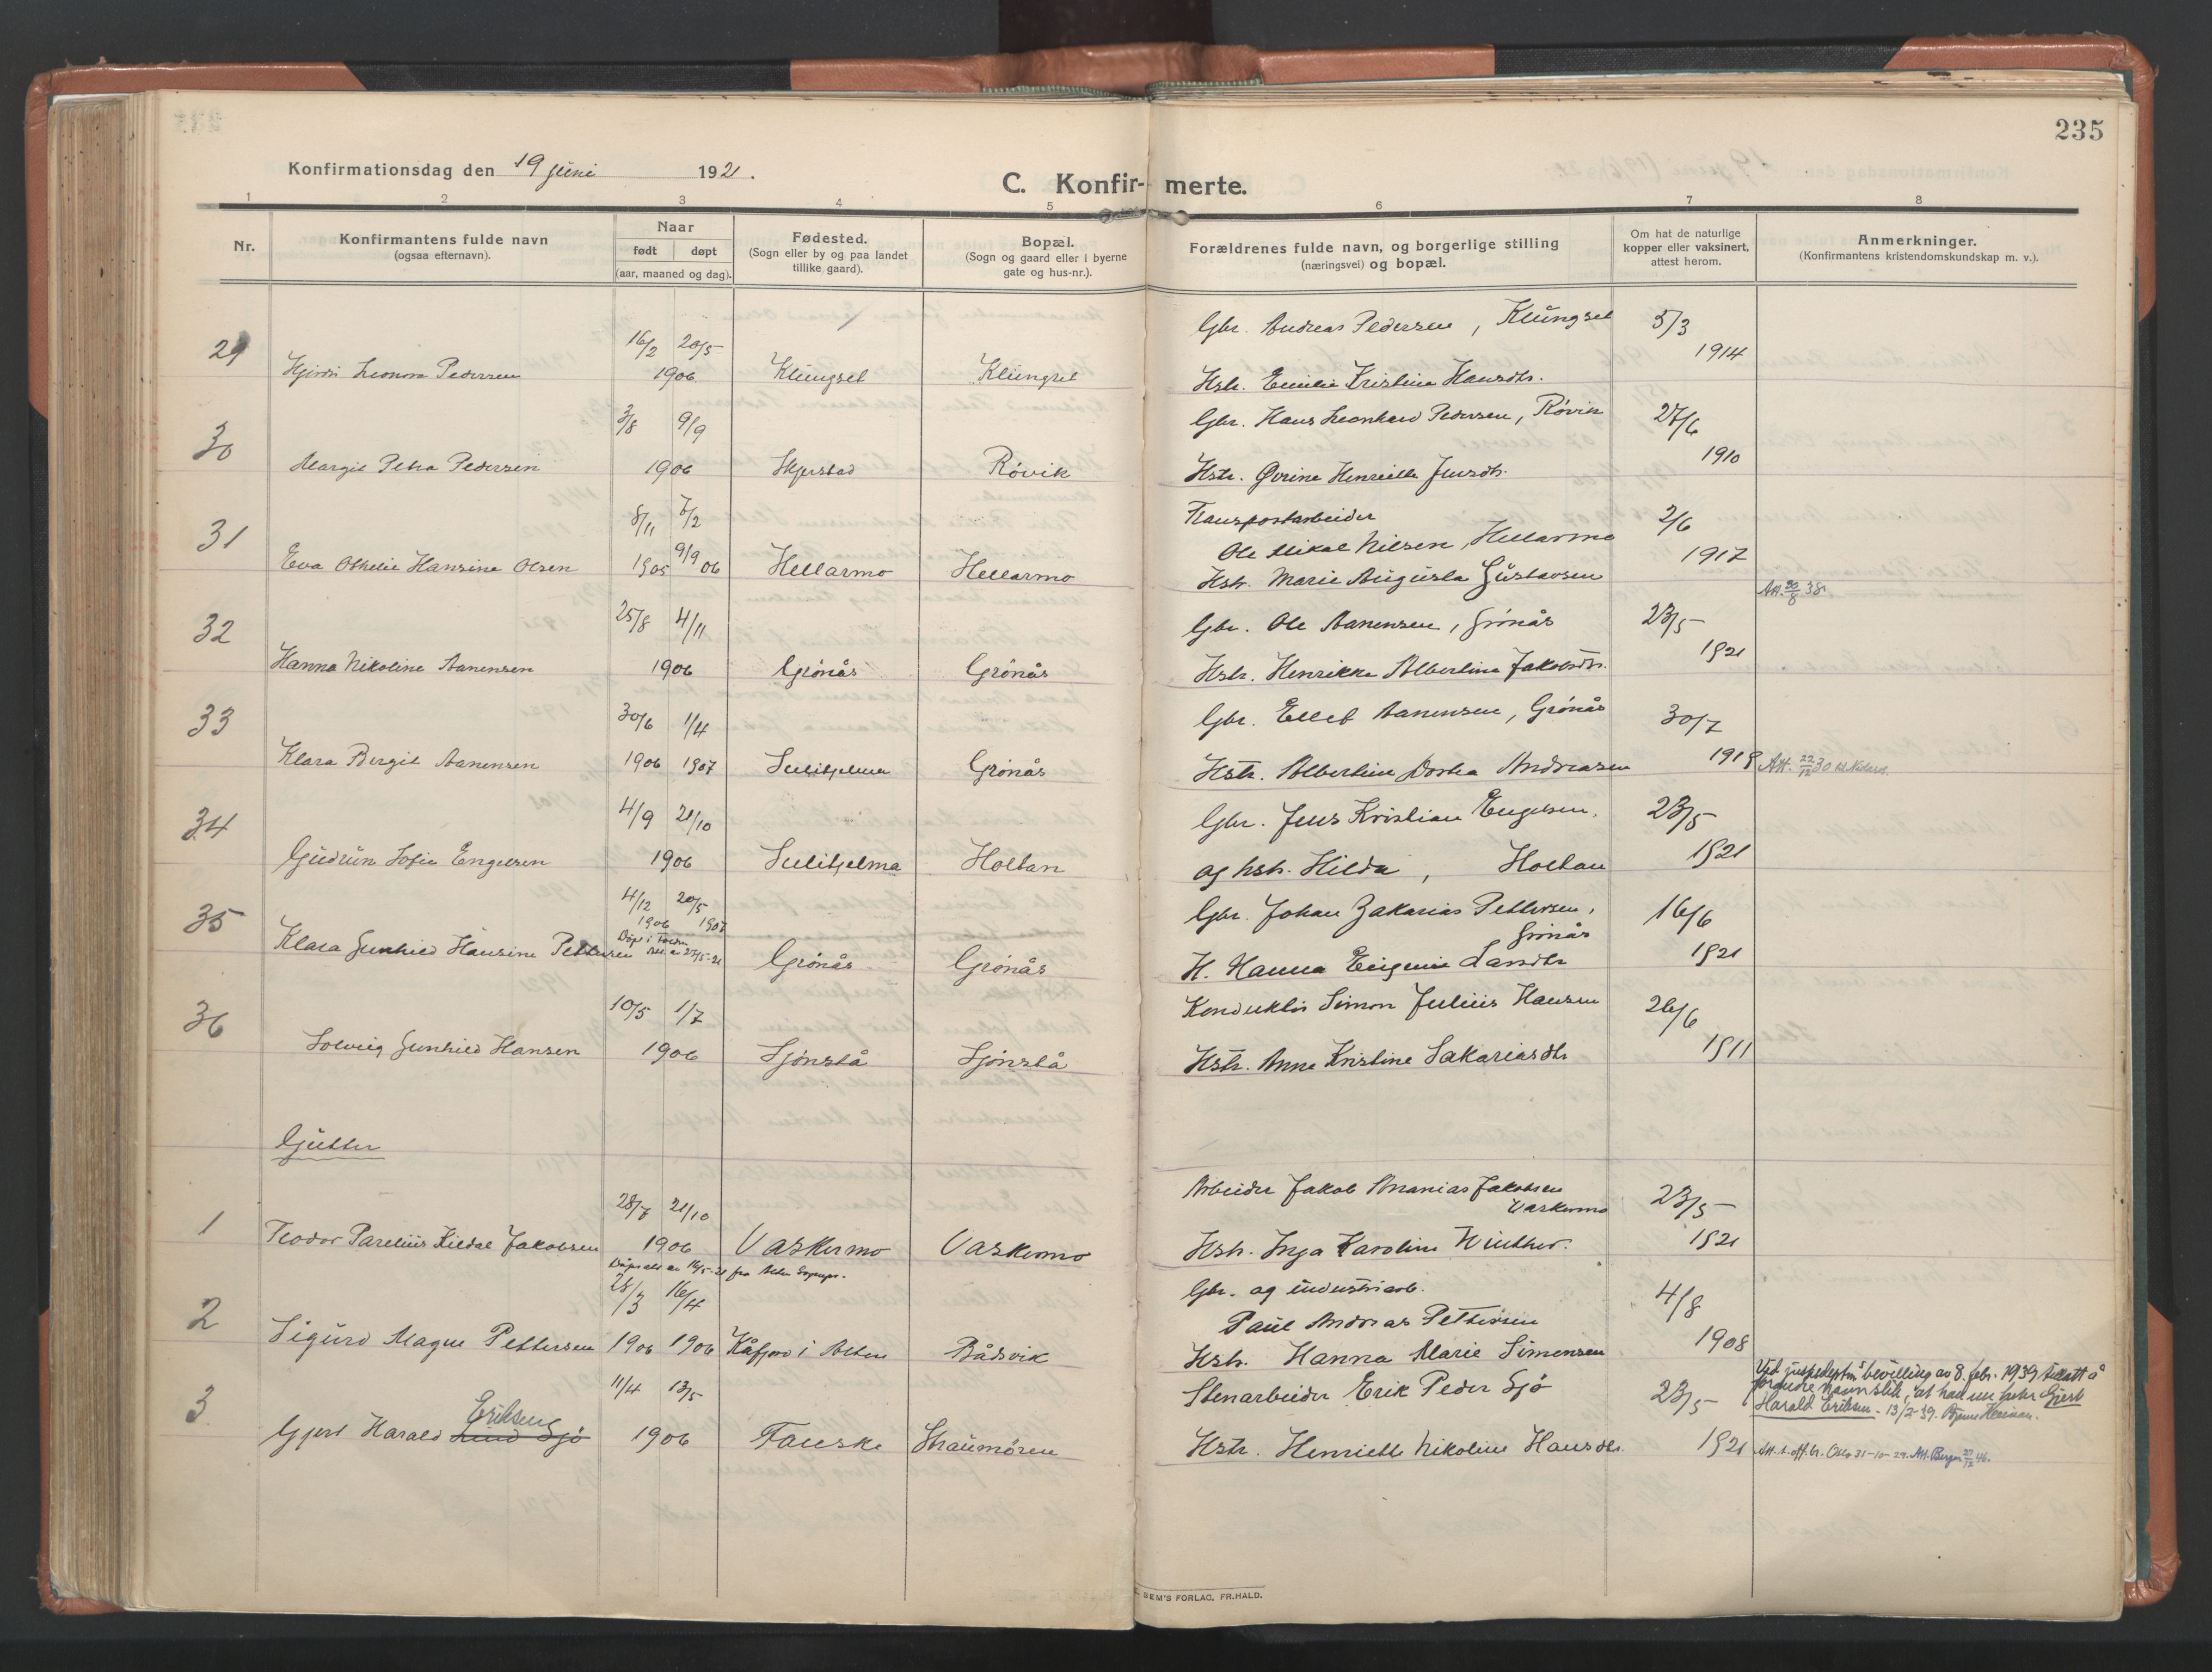 235
Konfirmationsdag den 19 juni 1921.
C. Konfir- merte.
1 2 3 4 5 6 7 8
Nr.
Konfirmantens fulde navn
(ogsaa efternavn).
Naar
født døpt
(aar, maaned og dag).
Fødested.
(Sogn eller by og paa landet
tillike gaard).
Bopæl.
(Sogn og gaard eller i byerne
gate og hus-nr.).
Forældrenes fulde navn, og borgerlige stilling
(næringsvei) og bopæl.
Om hat de naturlige
kopper eller vaksinert,
attest herom.
Anmerkninger.
(Konfirmantens kristendomskundskap m. v.).
29 16/2 20/5 Gbr. Andreas Pedersen, Klungset 5/3
Hjördis Leonora Pedersen 1906 Klungset Klungset Hstr. Emilie Kristine Hansdtr. 1914
30 3/8 9/9 Gbr. Hans Leonhard Pedersen, Røvik 27/6
Margit Petra Pedersen 1906 Skjerstad Røvik Hstr. Øvrine Henriette Jensdtr. 1910
31 8/11 7/2 Transportarbeider 2/6
Ole Mikal Nilsen, Hellarmo 1917
Eva Othelie Hansine Olsen 1905 9/9 06 Hellarmo Hellarmo Hstr. Marie Augusta Gustavsen
Att. 30/8 38.
32 25/8 4/11 Gbr. Ole Aanensen, Grönås 23/5
Hanna Nikoline Aanensen 1906 Grönås Grönås Hstr. Henrikke Albertine Jakobsdtr. 1921
33 30/6 1/4 Gbr. Ellef Aanensen, Grönås 30/7
Klara Bergit Aanensen 1906 1907 Sulitjelma Grönås Hstr. Albertine Dorthea Andreasen 1919 Att. 22/12 30 til Nidaros.
34 4/9 21/10 Gbr. Jens Kristian Engelsen, 23/5
Gudrun Sofie Engelsen 1906 Sulitjelma Holtan og hstr. Hilda, Holtan 1921
35 4/12 20/5 Gbr. Johan Zakarias Pettersen, 16/6
1906 1907
Döpt i
Att. av 27/5-21
Grönås
Klara Gunhild Hansine Pettersen Grönås Grönås H. Hanna Eugenie Larsdtr 1921
36 10/5 1/7 Konduktör Simon Julius Hansen 26/6
Solveig Gunhild Hansen 1906 Sjönstå Sjönstå Hstr. Anne Kristine Sakariasdtr 1911
Gutter
1 28/7 21/10 Arbeider Jakob Ananias Jakobsen 23/5
Vaskermo
Teodor Parelius Kildal Jakobsen 1906 Vaskermo Vaskermo Hstr. Inga Karoline Winther. 1921
Döpt att. av 16/5-21 fra Alten Sogepr.
2 28/3 16/4 Gbr. og industriarb. 4/8
Paul Andreas Pettersen
Sigurd Magne Pettersen 1906 1906 Kåfjord i Alten Bådsvik Hstr. Hanna Marie Simensen 1908
3 11/4 13/5 Stenarbeider Erik Peder Sjö 23/5
Eriksen
Gjert Harald Lund Sjö 1906 Fauske Straumören Hstr. Henriette Nikoline Hansdtr. 1921
Ved justisdept.s bevilling av 8. febr. 1939 tillatt å
forandre navn slik, at han nu heter Gjert
Harald Eriksen. - 13/2-39.
Att. t. off. br. Oslo 31-10-29. Att. Bergen 27/12 46.
SEM'S FORLAG, FR.HALD.